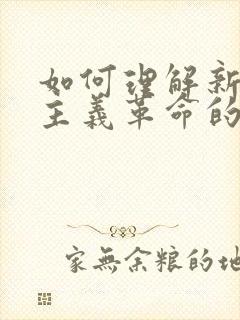 如何理解新
主义革命的
家无余粮的地